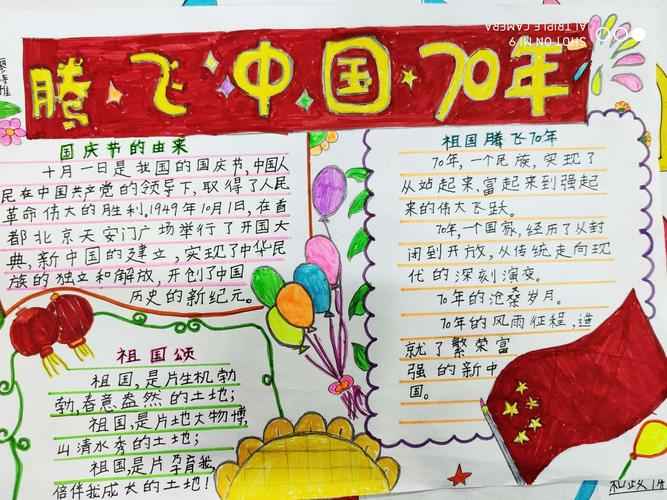 腾飞中国70年
国庆节的由来
十月一日是我国的国庆节,中国人
民在中国共产党的领导下,取得了人民
革命伟大的胜利,1949年10月1日,在首
都北京天安门广场举行了开国大
典,新中国的建立,实现了中华民
族的独立和解放,开创了中国
历史的新纪元。
祖国颂
祖国,是片生机勃
勃,春意盎然的土地;
祖国,是片地大物博,
山清水秀的土地;
祖国,是片孕育我,
陪伴我成长的土地!
祖国腾飞70年
70年,一个民族,实现了
从站起来,富起来到强起
来的伟大飞跃。
70年,一个国家,经历了从封
闭到开放,从传统走向现
代的深刻演变。
70年的沧桑岁月。
70年的风雨征程,造
就了繁荣富
强的新中
国。
SHOT ON MI 9
AI TRIPLE CAMERA